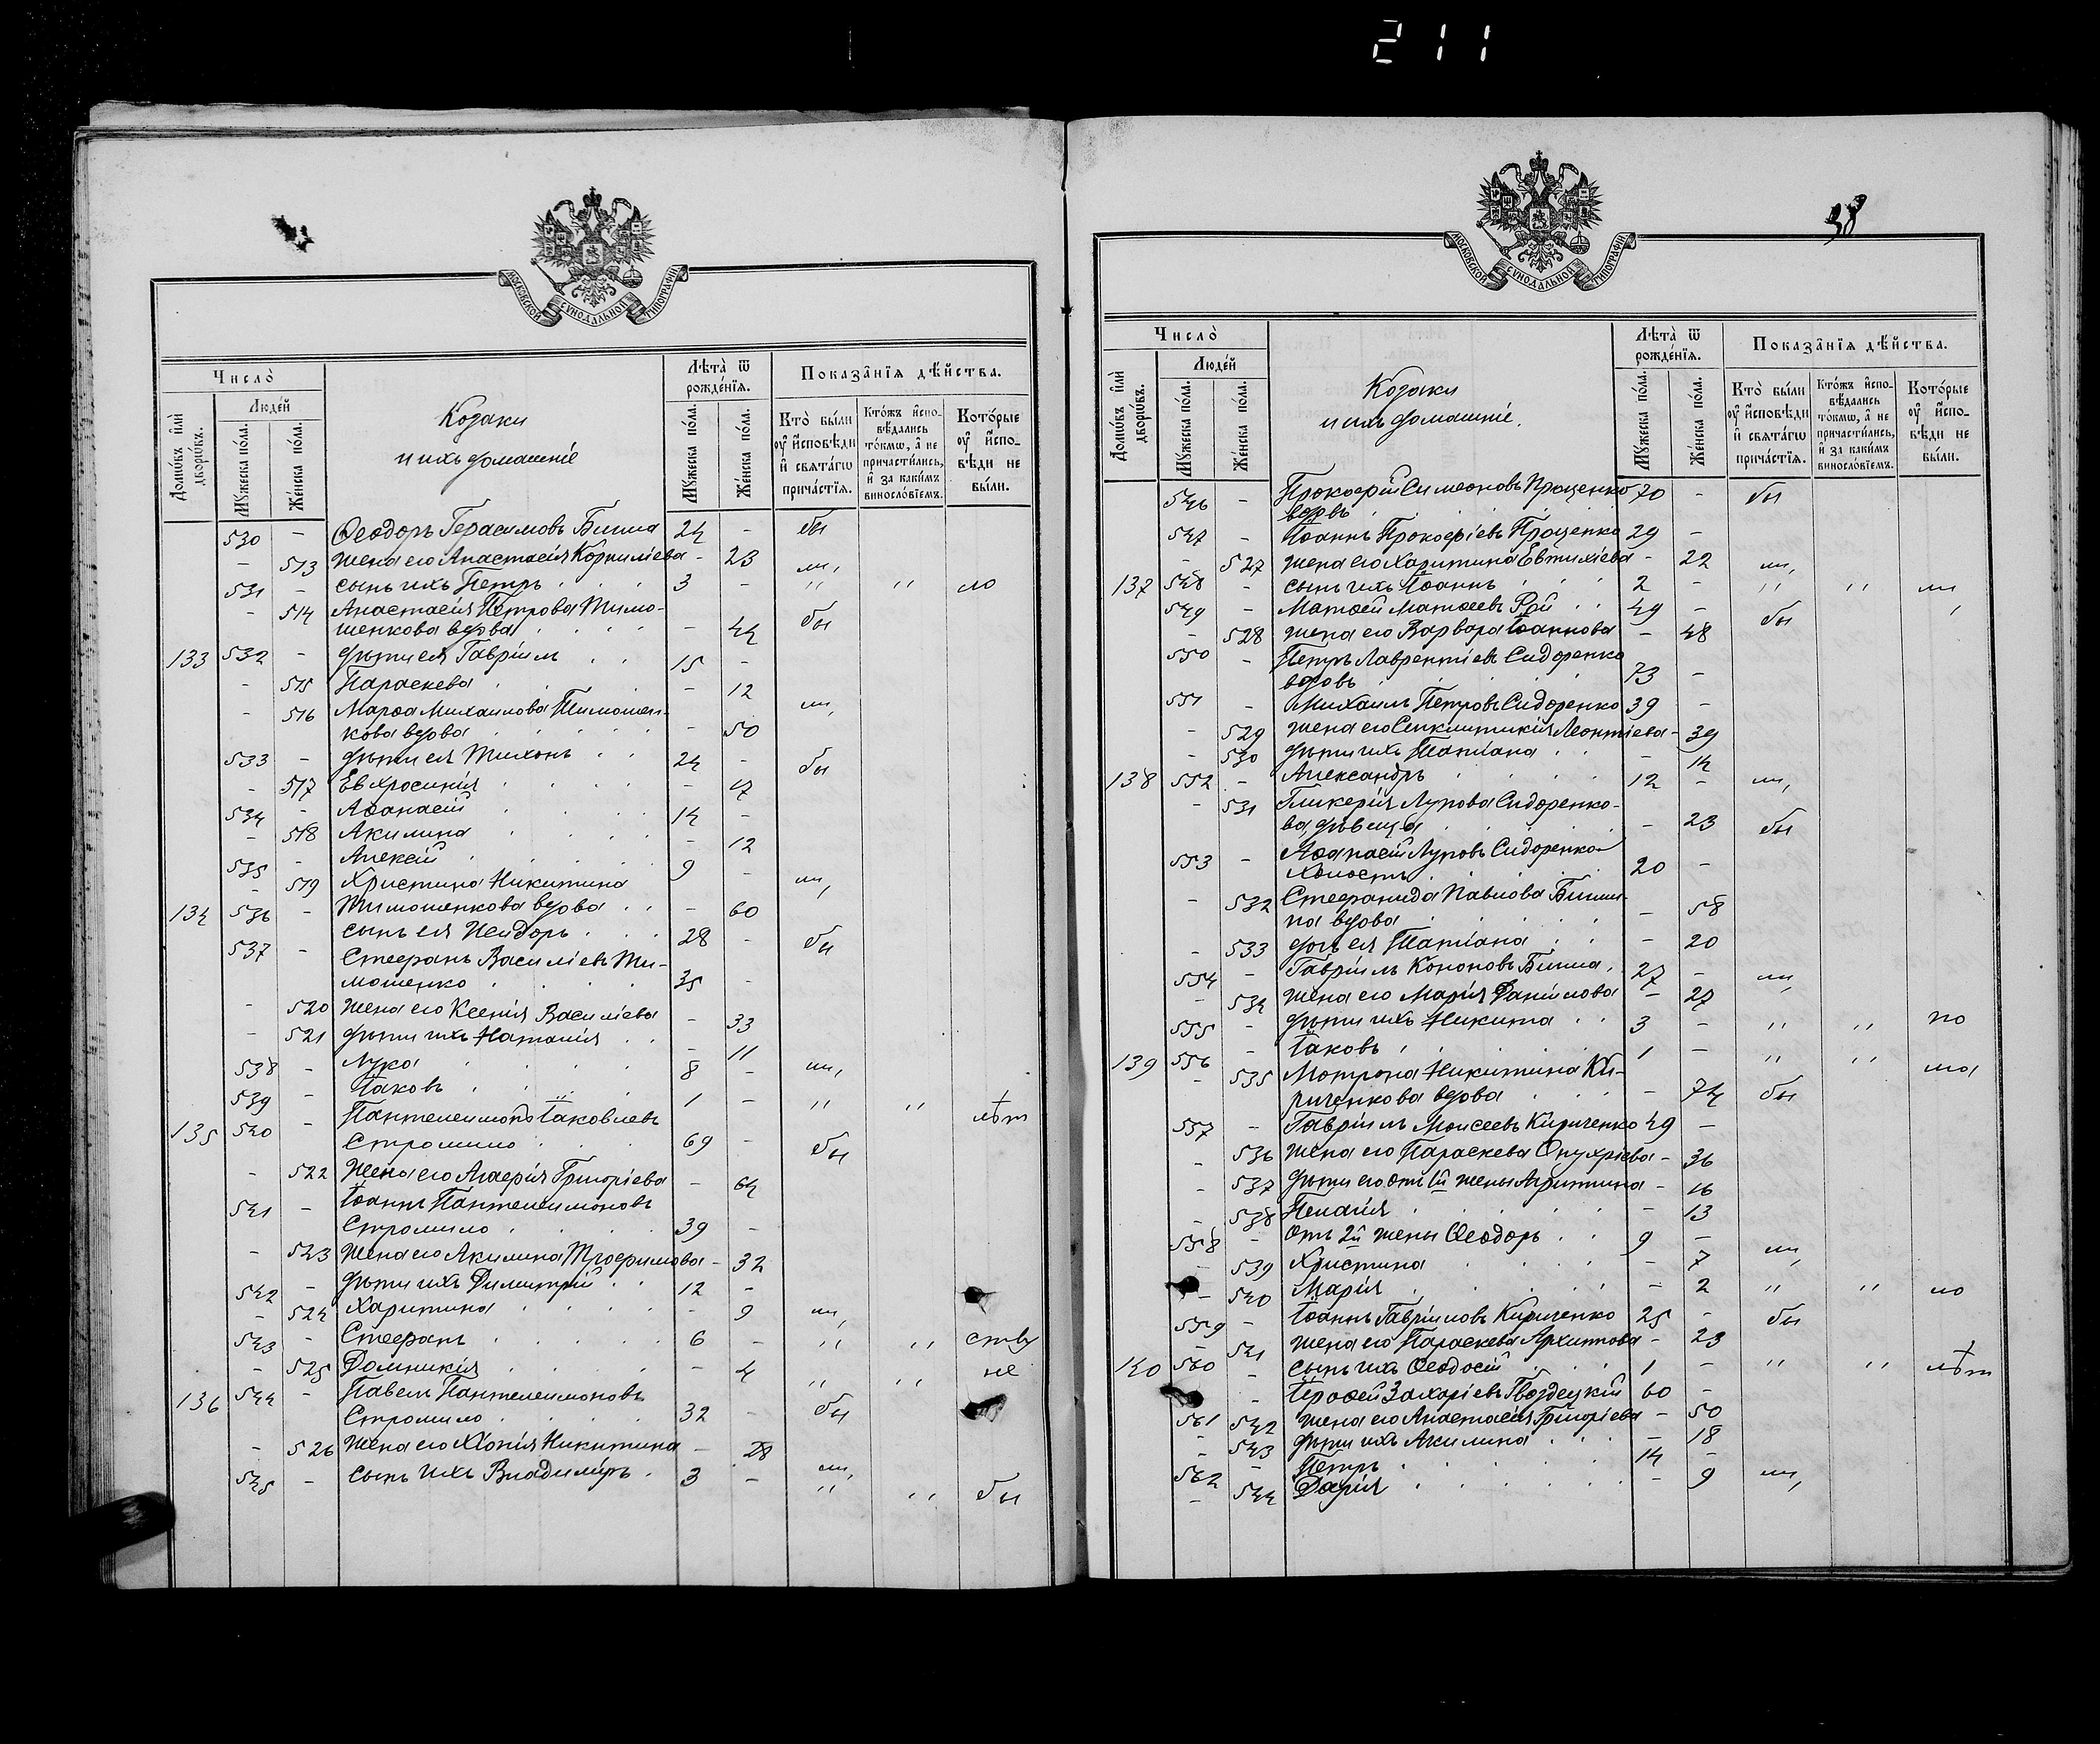 211
МОСКОВСКОЙ СѴНОДАЛЬНОЙ ТИПОГРАФІИ
Число̀
Людей
Домѡвъ и҆лѝ дворѡвъ.
Мꙋжеска по́ла.
Же́нска по́ла.
Козаки
и ихъ домашніе
Лѣта̀ ѿ рожде́нїѧ.
Мꙋжеска по́ла.
Же́нска по́ла.
Показа̑нїѧ дѣ́йства.
Кто̀ бы́ли оу҆ и҆сповѣди и҆ свѧта́гѡ прича́стїѧ.
Кто́жъ и҆спо-вѣдались то́кмѡ, а҆ не причасти́лись, и҆ за каки́мъ винослові́емъ.
Кото́рые оу҆ и҆спо-вѣди не бы́ли.
530 - Ѳеодоръ Герасимовъ Бишша 24 - бы
- 513 жена его Анастасія Корниліева - 23 ли,
531 - сынъ ихъ Петръ 3 - " " ло
- 514 Анастасія Петрова Тимо-
шенкова вдова - 44 бы
133 532 - дѣти ея Гавріилъ 15 -
- 515 Параскева - 12
- 516 Марѳа Михаилова Тимошен- ли,
кова вдова - 50
533 - дѣти ея Тихонъ 24 - бы
- 517 Евхросинія - 17
534 - Аѳанасій 14 -
- 518 Акилина - 12
535 - Алексій 9 -
- 519 Христина Никитина ли,
134 536 - Тимошенкова вдова - 60
сынъ ея Исидоръ 28 - бы
537 - Стефанъ Василіевъ Ти-
мошенко 35 -
- 520 жена его Ксенія Василіева - 33
- 521 дѣти ихъ Наталія - 11
538 - Лука 8 - ли,
539 - Іаковъ 1 - " " лѣт
135 540 - Пантелеимонъ Іаковлевъ
Стромило 69 - бы
- 522 Жена его Агафія Григоріева - 64
541 - Іоаннъ Пантелеимоновъ
Стромило 39 -
- 523 Жена его Акилина Трофимова - 32
542 - дѣти ихъ Димитрій 12 -
- 524 Харитина - 9 ли,
543 - Стефанъ 6 - " " ству
- 525 Домникія - 4 " " не
136 544 - Павелъ Пантелеимоновъ
Стромило 32 - бы
- 526 Жена его Хіонія Никитина - 28
545 - сынъ ихъ Владиміръ 3 - ли, " " бы
38
МОСКОВСКОЙ СѴНОДАЛЬНОЙ ТИПОГРАФІИ
Число̀
Людей
Домѡвъ и҆лѝ дворѡвъ.
Мꙋжеска по́ла.
Же́нска по́ла.
Козаки
и ихъ домашніе.
Лѣта̀ ѿ рожде́нїѧ.
Мꙋжеска по́ла.
Же́нска по́ла.
Показа̑нїѧ дѣ́йства.
Кто̀ бы́ли оу҆ и҆сповѣди и҆ свѧта́гѡ прича́стїѧ.
Кто́жъ и҆спо-вѣдались то́кмѡ, а҆ не причасти́лись, и҆ за каки́мъ винослові́емъ.
Кото́рые оу҆ и҆спо-вѣди не бы́ли.
546 - Прокофій Симеоновъ Проценко 70 - бы
вдовъ
547 - Іоаннъ Прокофіевъ Проценко 29 -
- 527 жена его Харитина Евтихіева - 22 ли,
137 548 - сынъ ихъ Іоаннъ 2 - " " ли,
549 - Матѳей Матѳеевъ Рой 49 - бы
- 528 жена его Варвара Іоаннова - 48
550 - Петръ Лаврентіевъ Сидоренко
вдовъ 73 -
551 - Михаилъ Петровъ Сидоренко 39 -
- 529 жена его Синклитикія Леонтіева - 39
- 530 дѣти ихъ Татіана - 14
138 552 - Александръ 12 - ли,
- 531 Гликерія Лупова Сидоренко-
ва, дѣвица - 23 бы
553 - Аѳанасій Луповъ Сидоренко
Холостъ 20 -
- 532 Стефанида Павлова Бишши-
на вдова - 58
- 533 дочь ея Татіана - 20
554 - Гавріилъ Кононовъ Бишша 27 - ли,
- 534 жена его Марія Даніилова - 27
555 - дѣти ихъ Никита 3 - " " по
139 556 - Іаковъ 1 - " " ма
- 535 Мотрона Никитина Ки-
риченкова вдова - 74 бы
557 - Гавріилъ Моисеевъ Кириченко 49 -
- 536 жена его Параскева Онуфріева - 36
- 537 дѣти его отъ 1й жены Агрипина - 16
- 538 Пелагія - 13
558 - Отъ 2й жены Ѳеодоръ 9 -
- 539 Христина - 7 ли,
- 540 Марія - 2 " " ло
559 - Іоаннъ Гавріиловъ Кириченко 25 - бы
- 541 жена его Параскева Архиппова - 23
140 560 - сынъ ихъ Ѳеодосій 1 - " " лѣт
- Іероѳей Захаріевъ Гвоздецкій 60 -
561 542 жена его Анастасія Григоріева - 50
- 543 дѣти ихъ Акилина - 18
562 - Петръ 14 -
- 544 Дарія - 9 ли,